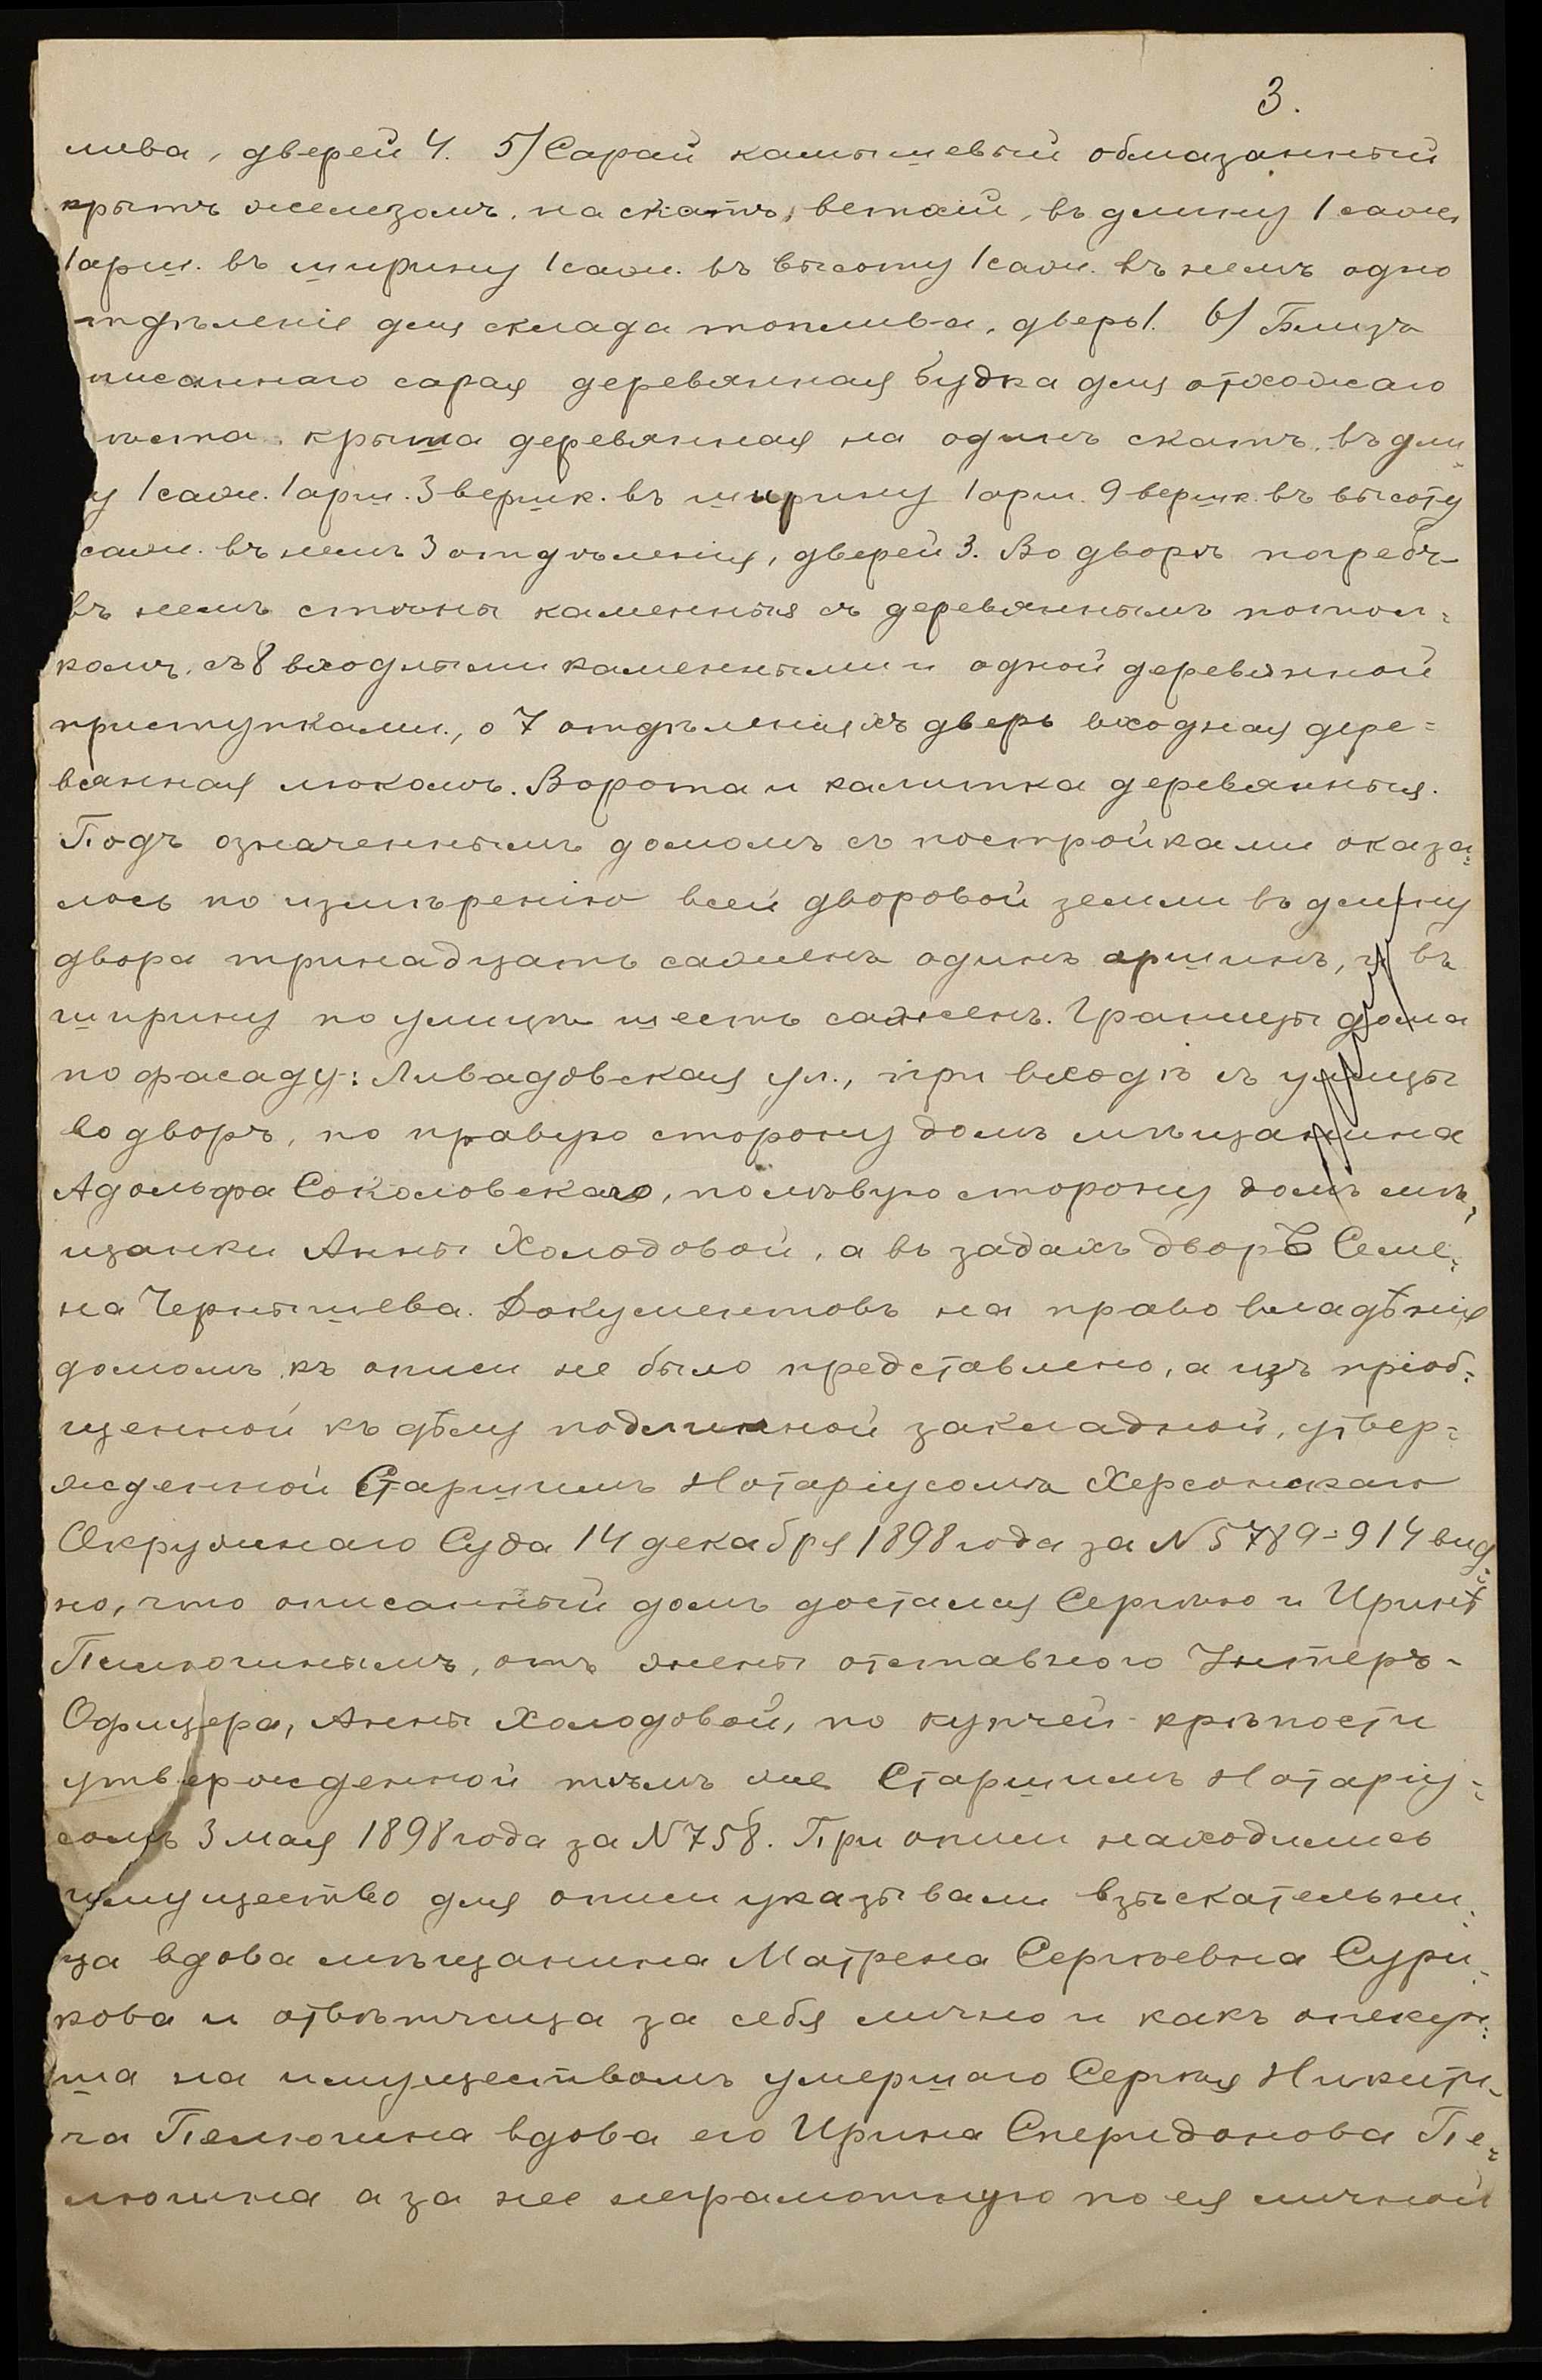 3.
лива, дверей 4. 5) Сарай камышевый обмазанный
крытъ железомъ, на скатъ, ветхій, въ длину 1 саж.
1 арш. въ ширину 1 саж. въ высоту 1 саж. въ немъ одно
тдѣленіе для склада топлива, дверь 1. 6) Близъ
писаннаго сарая деревянная будка для отхожаго
ѣста, крыша деревянная на одинъ скатъ, въ дли-
у 1 саж. 1 арш. 3 вершк. въ ширину 1 арш. 9 вершк. въ высоту
саж. въ немъ 3 отдѣленія, дверей 3. Во дворѣ погребъ
въ немъ стѣны каменныя съ деревяннымъ потол-
комъ, съ 8 входными каменными и одной деревянной
приступками, о 7 отдѣленіяхъ дверь входная дере-
вянная люкомъ. Ворота и калитка деревянныя.
Подъ означеннымъ домомъ съ постройками оказа-
лось по измѣренію всей дворовой земли въ длину
двора тринадцать саженъ одинъ аршинъ, и въ
ширину по улицѣ шесть саженъ. Границы дома
по фасаду: Ливадовская ул., при входѣ съ улицы
во дворъ, по правую сторону домъ мѣщанина
Адольфа Соколовскаго, по лѣвую сторону домъ мѣ-
щанки Анны Холодовой, а въ задахъ дворъ Семе-
на Чернышева. Документовъ на право владѣнія
домомъ къ описи не было представлено, а изъ пріоб-
щенной къ дѣлу подлинной закладной, утвер-
жденной Старшимъ Нотаріусомъ Херсонскаго
Окружнаго Суда 14 декабря 1898 года за N 5789=914 вид-
но, что описанный домъ достался Сергѣю и Иринѣ
Пелюгинымъ, отъ жены отставного Унтеръ-
Офицера, Анны Холодовой, по купчей крѣпости
утвержденной тѣмъ же Старшимъ Нотаріу-
сомъ 3 мая 1898 года за N 758. При описи находились
имущество для описи указывали взыскательни-
ца вдова мѣщанина Матрена Сергѣевна Сури-
кова и отвѣтчица за себя лично и какъ опекун-
ша на имуществомъ умершаго Сергѣя Никити-
ча Пелюгина вдова его Ирина Спиридонова Пе-
люгина а за нее неграмотную по ея личной